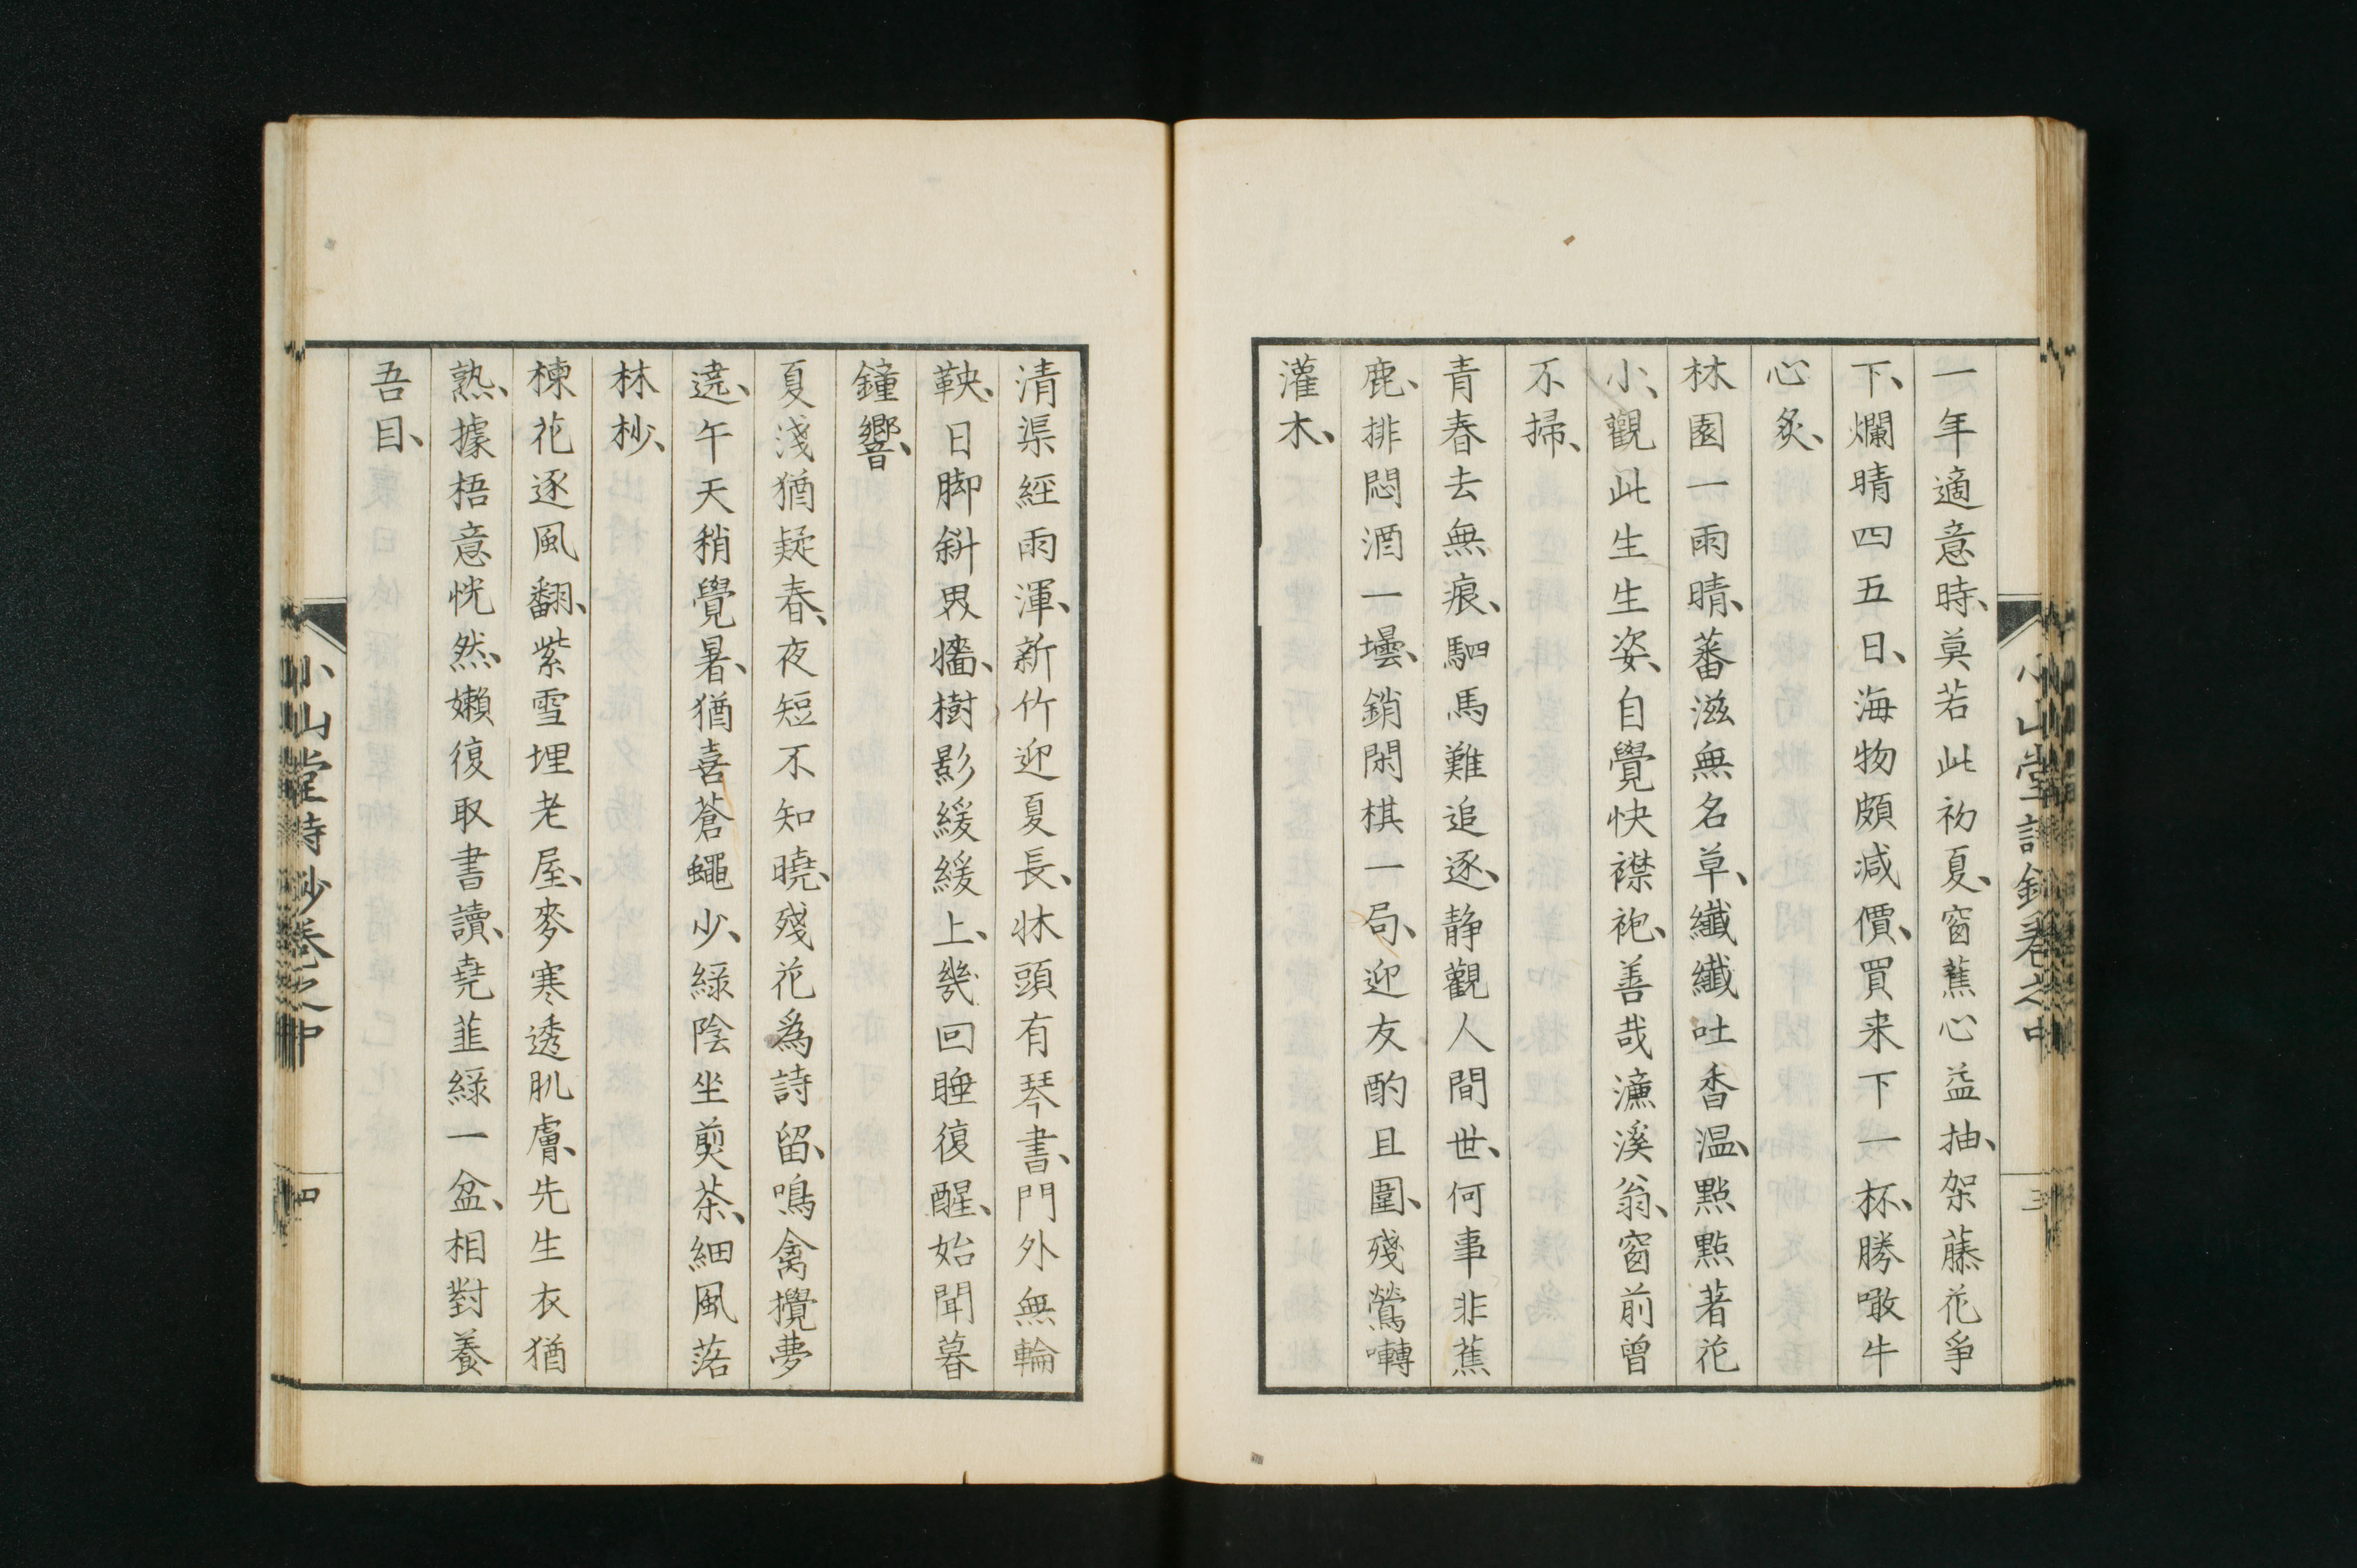 一年適意時、莫若此初夏、窗蕉心益抽、架藤花爭
下、爛晴四五日、海物頗减價、買来下一杯、勝噉牛
心炙、
林園一雨晴、蕃滋無名草、纖纖吐香温、點點著花
小、觀此生生姿、自覺快襟袍、善哉濂溪翁、窗前曾
不掃、
青春去無痕、駟馬難追逐、静觀人間世、何事非蕉
鹿、排悶酒一壜、銷閑棋一局、迎友酌且圍、殘鶯囀
灌木、
小山堂詩鈔卷之中
三
清渠經雨渾、新竹迎夏長、牀頭有琴書、門外無輪
鞅、日脚斜界牆、樹影緩緩上、幾回睡復醒、始聞暮
鐘響、
夏淺猶疑春、夜短不知曉、殘花為詩留、鳴禽攪夢
遶、午天稍覺暑、猶喜蒼蠅少、緑陰坐煎茶、細風落
林杪、
楝花逐風翻、紫雪埋老屋、麥寒透肌膚、先生衣猶
熟、據梧意恍然、嬾復取書讀、堯韮緑一盆、相對養
吾目、
小山堂詩鈔卷之中
四